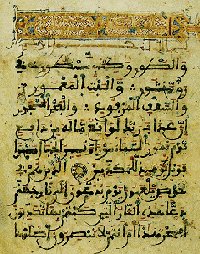 والطور وكتب مسطور في
رق منشور والبيت المعمور
والسقف المرفوع والبحر المسجور
ان عذاب ربك لواقع ما له من دافع
يوم تمور السماء مورا وتسير الجبال
سيرا فويل يومئذ للمكذبين الذين هم في
خوض يلعبون يوم يدعون الى نار جهنم
دعا هذه النار التي كنتم بها تكذبون
افسحر هذا ام انتم لا تبصرون اصلوها